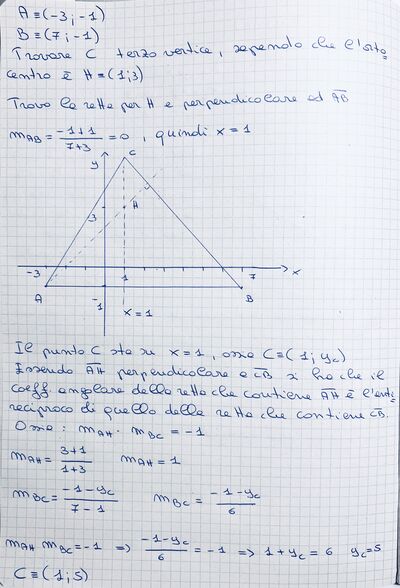 A ≡ (-3; -1)
B ≡ (7; -1)
Trovare C terzo vertice, sapendo che l'orto
centro è H ≡ (1;3)
Trovo la retta per H e perpendicolare ad AB
m_AB = (-1+1)/(7+3) = 0, quindi x = 1
y
C
3
H
-3
1
7
x
A
-1
B
x = 1
Il punto C sta su x = 1, ossia C ≡ (1; y_C)
Essendo AH perpendicolare a CB si ha che il
coeff. angolare della retta che contiene AH è l'anti
reciproco di quello della retta che contiene CB.
Ossia: m_AH · m_BC = -1
m_AH = (3+1)/(1+3) m_AH = 1
m_BC = (-1-y_C)/(7-1) m_BC = (-1-y_C)/6
m_AH m_BC = -1 ⇒ (-1-y_C)/6 = -1 ⇒ 1+y_C = 6 y_C = 5
C ≡ (1; 5)